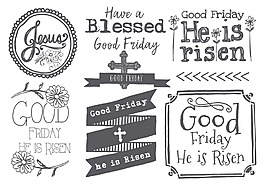 Jesus
Have a
Blessed
Good Friday
GOOD FRIDAY
Good Friday
He is
risen
GOOD
FRIDAY
HE IS RISEN
Good Friday
he is Risen
Good
Friday
He is Risen